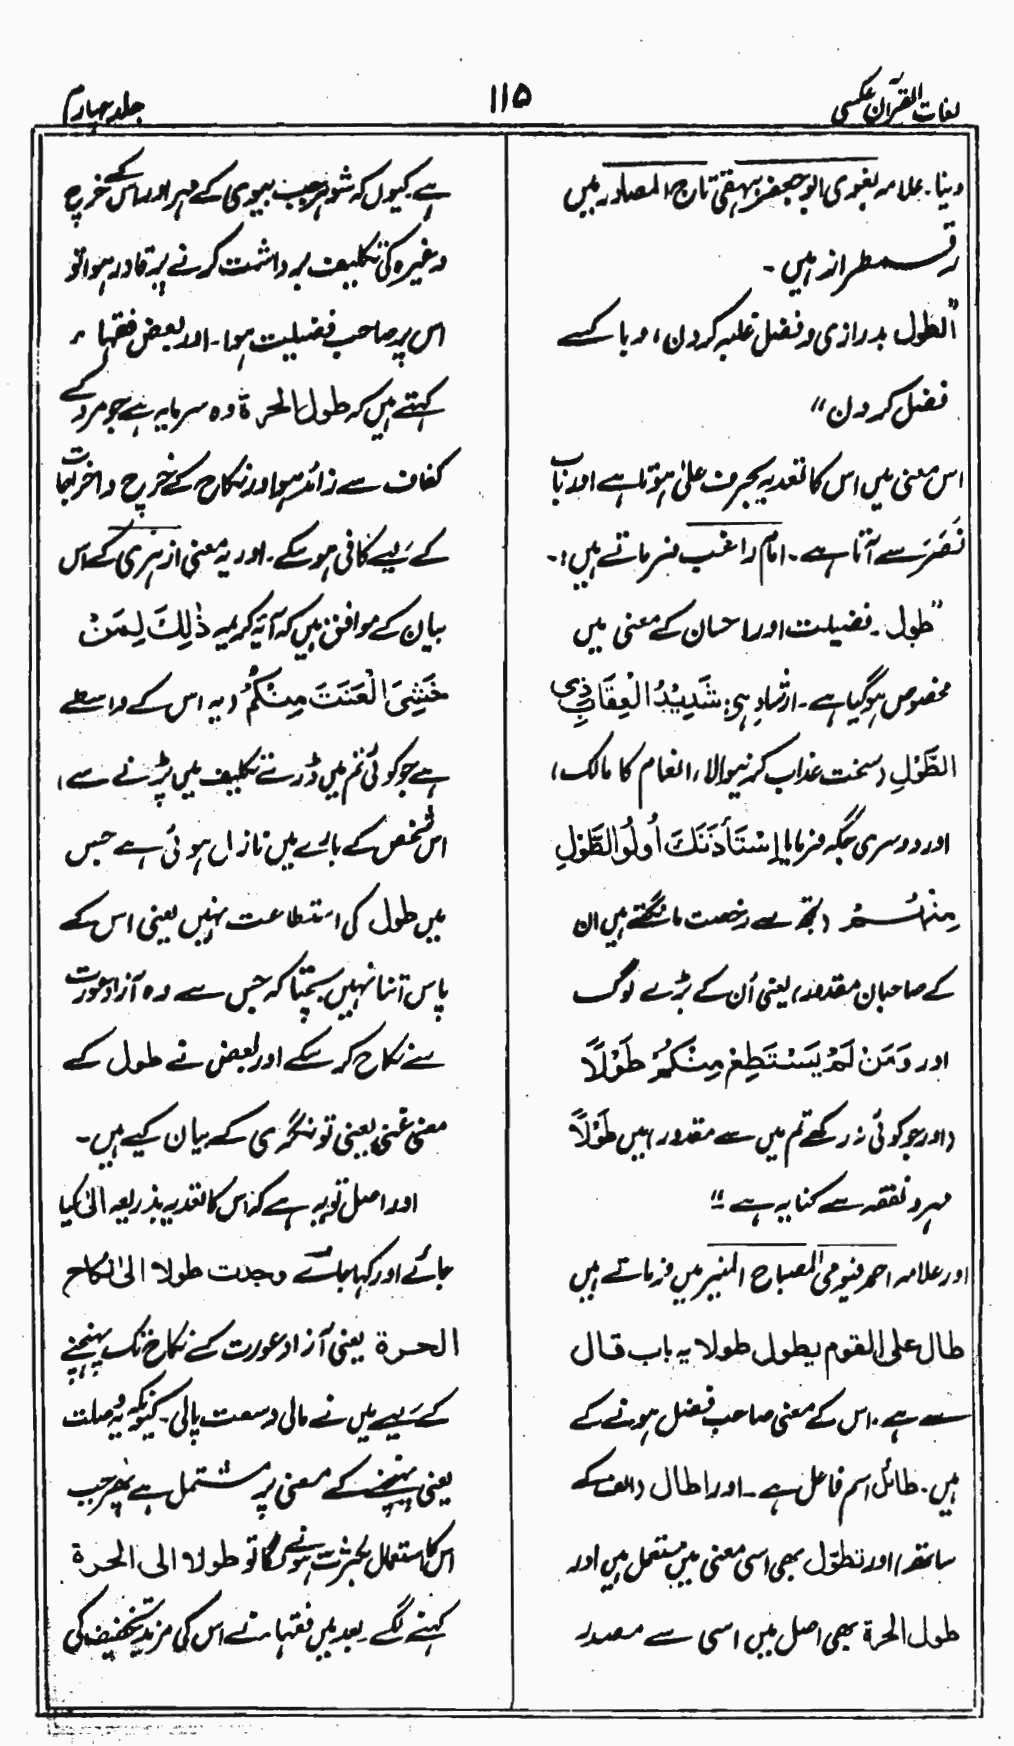 لغات القرآن عکسی
۱۱۵
جلد چہارم
دینا۔ علامہ لغوی ابو جعفر بیہقی تاج المصادر میں
رقمطراز ہیں ۔
"الطول بدرازی و فضل غلبہ کردن، و با کسے
فضل کردن"
اس معنی میں اس کا تعدیہ بحرف علیٰ ہوتا ہے اور باب
نَصَرَ سے آتا ہے۔ امام راغب فرماتے ہیں :۔
"طول ۔ فضیلت اور احسان کے معنی میں
مخصوص ہوگیا ہے ۔ ارشاد ہے: شَدِیْدُ الْعِقَابِ ذِی
الطَّوْلِ (سخت عذاب کرنیوالا، انعام کا مالک)
اور دوسری جگہ فرمایا اِسْتَأْذَنَكَ اُولُوا الطَّوْلِ
مِنْهُمْ (تجھ سے رخصت مانگتے ہیں ان
کے صاحبان مقدور) یعنی اُن کے بڑے لوگ
اور وَمَنْ لَمْ یَسْتَطِعْ مِنْكُمْ طَوْلًا
(اور جو کوئی نہ رکھے تم میں سے مقدور) میں طَوْلًا
مہر و نفقہ سے کنایہ ہے"
اور علامہ احمد فیومی المصباح المنیر میں فرماتے ہیں
طال علی القوم یطول طولا یہ باب قال
سے ہے ۔ اس کے معنی صاحب فضل ہونے کے
ہیں ۔ طائل اسم فاعل ہے ۔ اور اطال (الف کے
ساتھ) اور تطوّل بھی اسی معنی میں مستعمل ہیں اور
طول الحرۃ بھی اصل میں اسی سے مصدر
ہے۔ کیوں کہ شوہر جب بیوی کے مہر اور اس کے خرچ
وغیرہ کی تکلیف برداشت کرنے پر قادر ہوا تو
اس پر صاحب فضیلت ہوا ۔ اور بعض فقہاء
کہتے ہیں کہ طول الحرۃ وہ سرمایہ ہے جو مرد کے
کفاف سے زائد ہو اور نکاح کے خرچ و اخراجات
کے لیے کافی ہوسکے ۔ اور یہ معنی ازہری کے اس
بیان کے موافق ہیں کہ آیۂ کریمہ ذٰلِكَ لِمَنْ
خَشِیَ الْعَنَتَ مِنْكُمْ (یہ اس کے واسطے
ہے جو کوئی تم میں ڈرے تکلیف میں پڑنے سے)
اس شخص کے بارے میں نازل ہوئی ہے جس
میں طول کی استطاعت نہیں یعنی اس کے
پاس اتنا نہیں بچتا کہ جس سے وہ آزاد عورت
سے نکاح کرسکے اور بعض نے طول کے
معنی غنی یعنی تونگری کے بیان کیے ہیں۔
اور اصل تو یہ ہے کہ اس کا تعدیہ بذریعہ الیٰ کیا
جائے اور کہا جائے وجدت طولا الیٰ نکاح
الحرۃ یعنی آزاد عورت کے نکاح تک پہنچنے
کے لیے میں نے مالی وسعت پالی ۔ کیونکہ یہ وصلت
یعنی پہنچنے کے معنی پر مشتمل ہے پھر جب
اس کا استعمال بکثرت ہونے لگا تو طولا الی الحرۃ
کہنے لگے ۔ بعد میں فقہاء نے اس کی مزید تخفیف کی